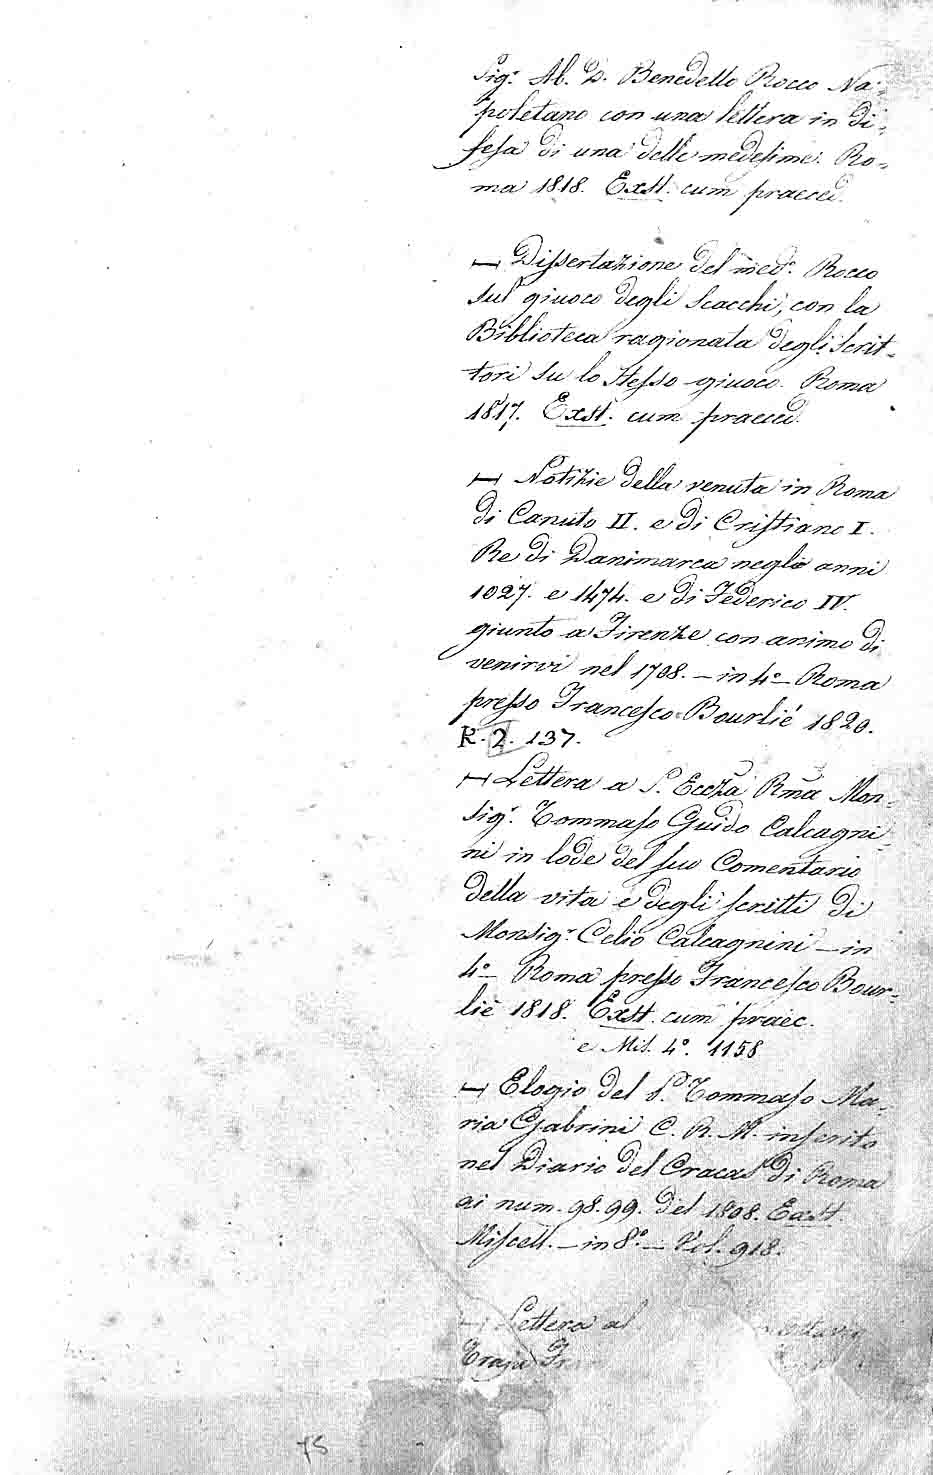 Sig.r Ab. D. Benedetto Rocco Na-
poletano con una lettera in di-
fesa di una delle medesime. Ro-
ma 1818. Exst. cum praeced.
— Dissertazione del med.o Rocco
sul giuoco degli Scacchi, con la
Biblioteca ragionata degli Scrit-
tori su lo stesso giuoco. Roma
1817. Exst. cum praeced.
— Notizie della venuta in Roma
di Canuto II. e di Cristiano I.
Re di Danimarca negli anni
1027. e 1474. e di Federico IV.
giunto a Firenze con animo di
venirvi nel 1708. – in 4.o – Roma
presso Francesco Bourliè 1820.
K. 2. 137.
— Lettera a S. Eccza Rma Mon-
sig.r Tommaso Guido Calcagni-
ni in lode del suo Comentario
della vita e degli scritti di
Monsig.r Celio Calcagnini – in
4.o – Roma presso Francesco Bour-
liè 1818. Exst. cum praec.
e Mis. 4.o 1158
— Elogio del P. Tommaso Ma-
ria Gabrini C. R. M. inserito
nel Diario del Cracas di Roma
ai num. 98. 99. del 1808. Exst.
Miscell. – in 8.o – Vol. 918.
— Lettera al
75